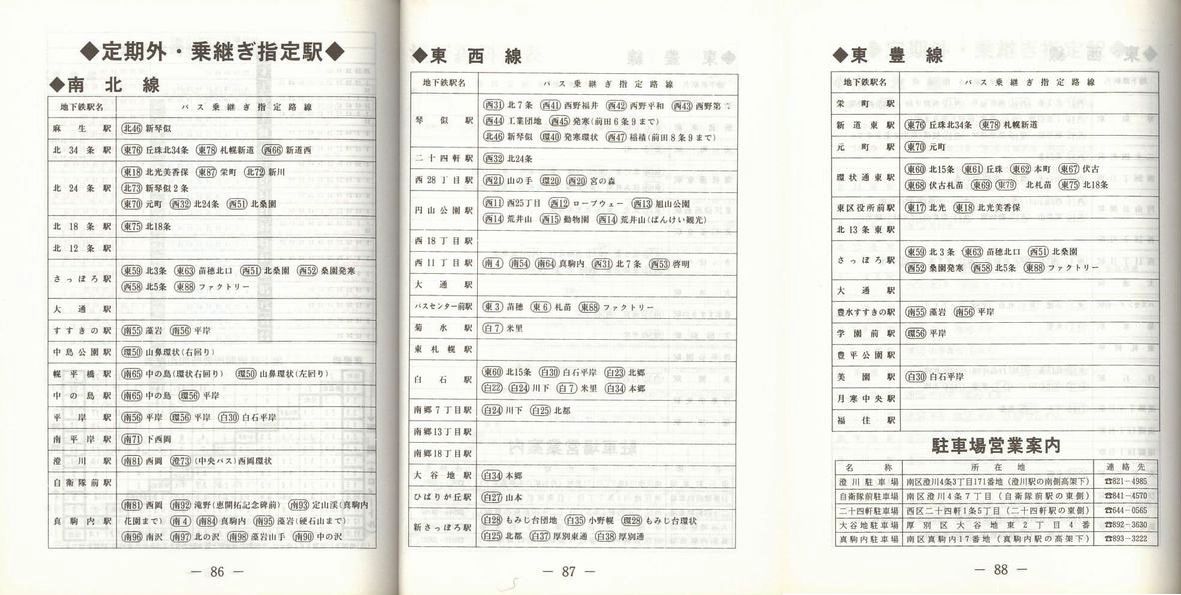 ◆定期外・乗継ぎ指定駅◆
◆南北線
地下鉄駅名 バス乗継ぎ指定路線
麻生駅 北46 新琴似
北34条駅 東76 丘珠北34条 東78 札幌新道 西66 新道西
北24条駅 東18 北光美香保 東87 栄町 北72 新川
北73 新琴似2条
東70 元町 西32 北24条 西51 北桑園
北18条駅 東75 北18条
北12条駅
さっぽろ駅 東59 北3条 東63 苗穂北口 西51 北桑園 西52 桑園発寒
西58 北5条 東88 ファクトリー
大通駅
すすきの駅 南55 藻岩 南56 平岸
中島公園駅 環50 山鼻環状(右回り)
幌平橋駅 南65 中の島(環状右回り) 環50 山鼻環状(左回り)
中の島駅 南65 中の島 環56 平岸
平岸駅 南56 平岸 環56 平岸 白30 白石平岸
南平岸駅 南71 下西岡
澄川駅 南81 西岡 澄73 (中央バス)西岡環状
自衛隊前駅
真駒内駅 南81 西岡 南92 滝野(恵開拓記念碑前) 南93 定山渓(真駒内
花園まで) 南4 南84 真駒内 南95 藻岩(硬石山まで)
南96 南沢 南97 北の沢 南98 藻岩山手 南90 中の沢
— 86 —
◆東西線
地下鉄駅名 バス乗継ぎ指定路線
琴似駅 西31 北7条 西41 西野福井 西42 西野平和 西43 西野第二
西44 工業団地 西45 発寒(前田6条9まで)
北46 新琴似 環40 発寒環状 西47 稲積(前田8条9まで)
二十四軒駅 西32 北24条
西28丁目駅 西21 山の手 環20 西20 宮の森
円山公園駅 西11 西25丁目 西12 ロープウェー 西13 旭山公園
西14 荒井山 西15 動物園 西14 荒井山(ばんけい観光)
西18丁目駅
西11丁目駅 南4 南54 南64 真駒内 西31 北7条 西53 啓明
大通駅
バスセンター前駅 東3 苗穂 東6 札苗 東88 ファクトリー
菊水駅 白7 米里
東札幌駅
白石駅 東60 北15条 白30 白石平岸 白23 北郷
白22 白24 川下 白7 米里 白34 本郷
南郷7丁目駅 白24 川下 白25 北都
南郷13丁目駅
南郷18丁目駅
大谷地駅 白34 本郷
ひばりが丘駅 白27 山本
新さっぽろ駅 白28 もみじ台団地 白35 小野幌 環28 もみじ台環状
白25 北都 白37 厚別東通 白38 厚別通
— 87 —
◆東豊線
地下鉄駅名 バス乗継ぎ指定路線
栄町駅
新道東駅 東76 丘珠北34条 東78 札幌新道
元町駅 東70 元町
環状通東駅 東60 北15条 東61 丘珠 東62 本町 東67 伏古
東68 伏古札苗 東69 東79 北札苗 東75 北18条
東区役所前駅 東17 北光 東18 北光美香保
北13条東駅
さっぽろ駅 東59 北3条 東63 苗穂北口 西51 北桑園
西52 桑園発寒 西58 北5条 東88 ファクトリー
大通駅
豊水すすきの駅 南55 藻岩 南56 平岸
学園前駅 環56 平岸
豊平公園駅
美園駅 白30 白石平岸
月寒中央駅
福住駅
駐車場営業案内
名称 所在地 連絡先
澄川駐車場 南区澄川4条3丁目171番地(澄川駅の南側高架下) ☎821-4985
自衛隊前駐車場 南区澄川4条7丁目(自衛隊前駅の東側) ☎841-4570
二十四軒駐車場 西区二十四軒1条5丁目(二十四軒駅の東側) ☎644-0565
大谷地駐車場 厚別区大谷地東2丁目4番 ☎892-3630
真駒内駐車場 南区真駒内17番地(真駒内駅の高架下) ☎893-3222
— 88 —